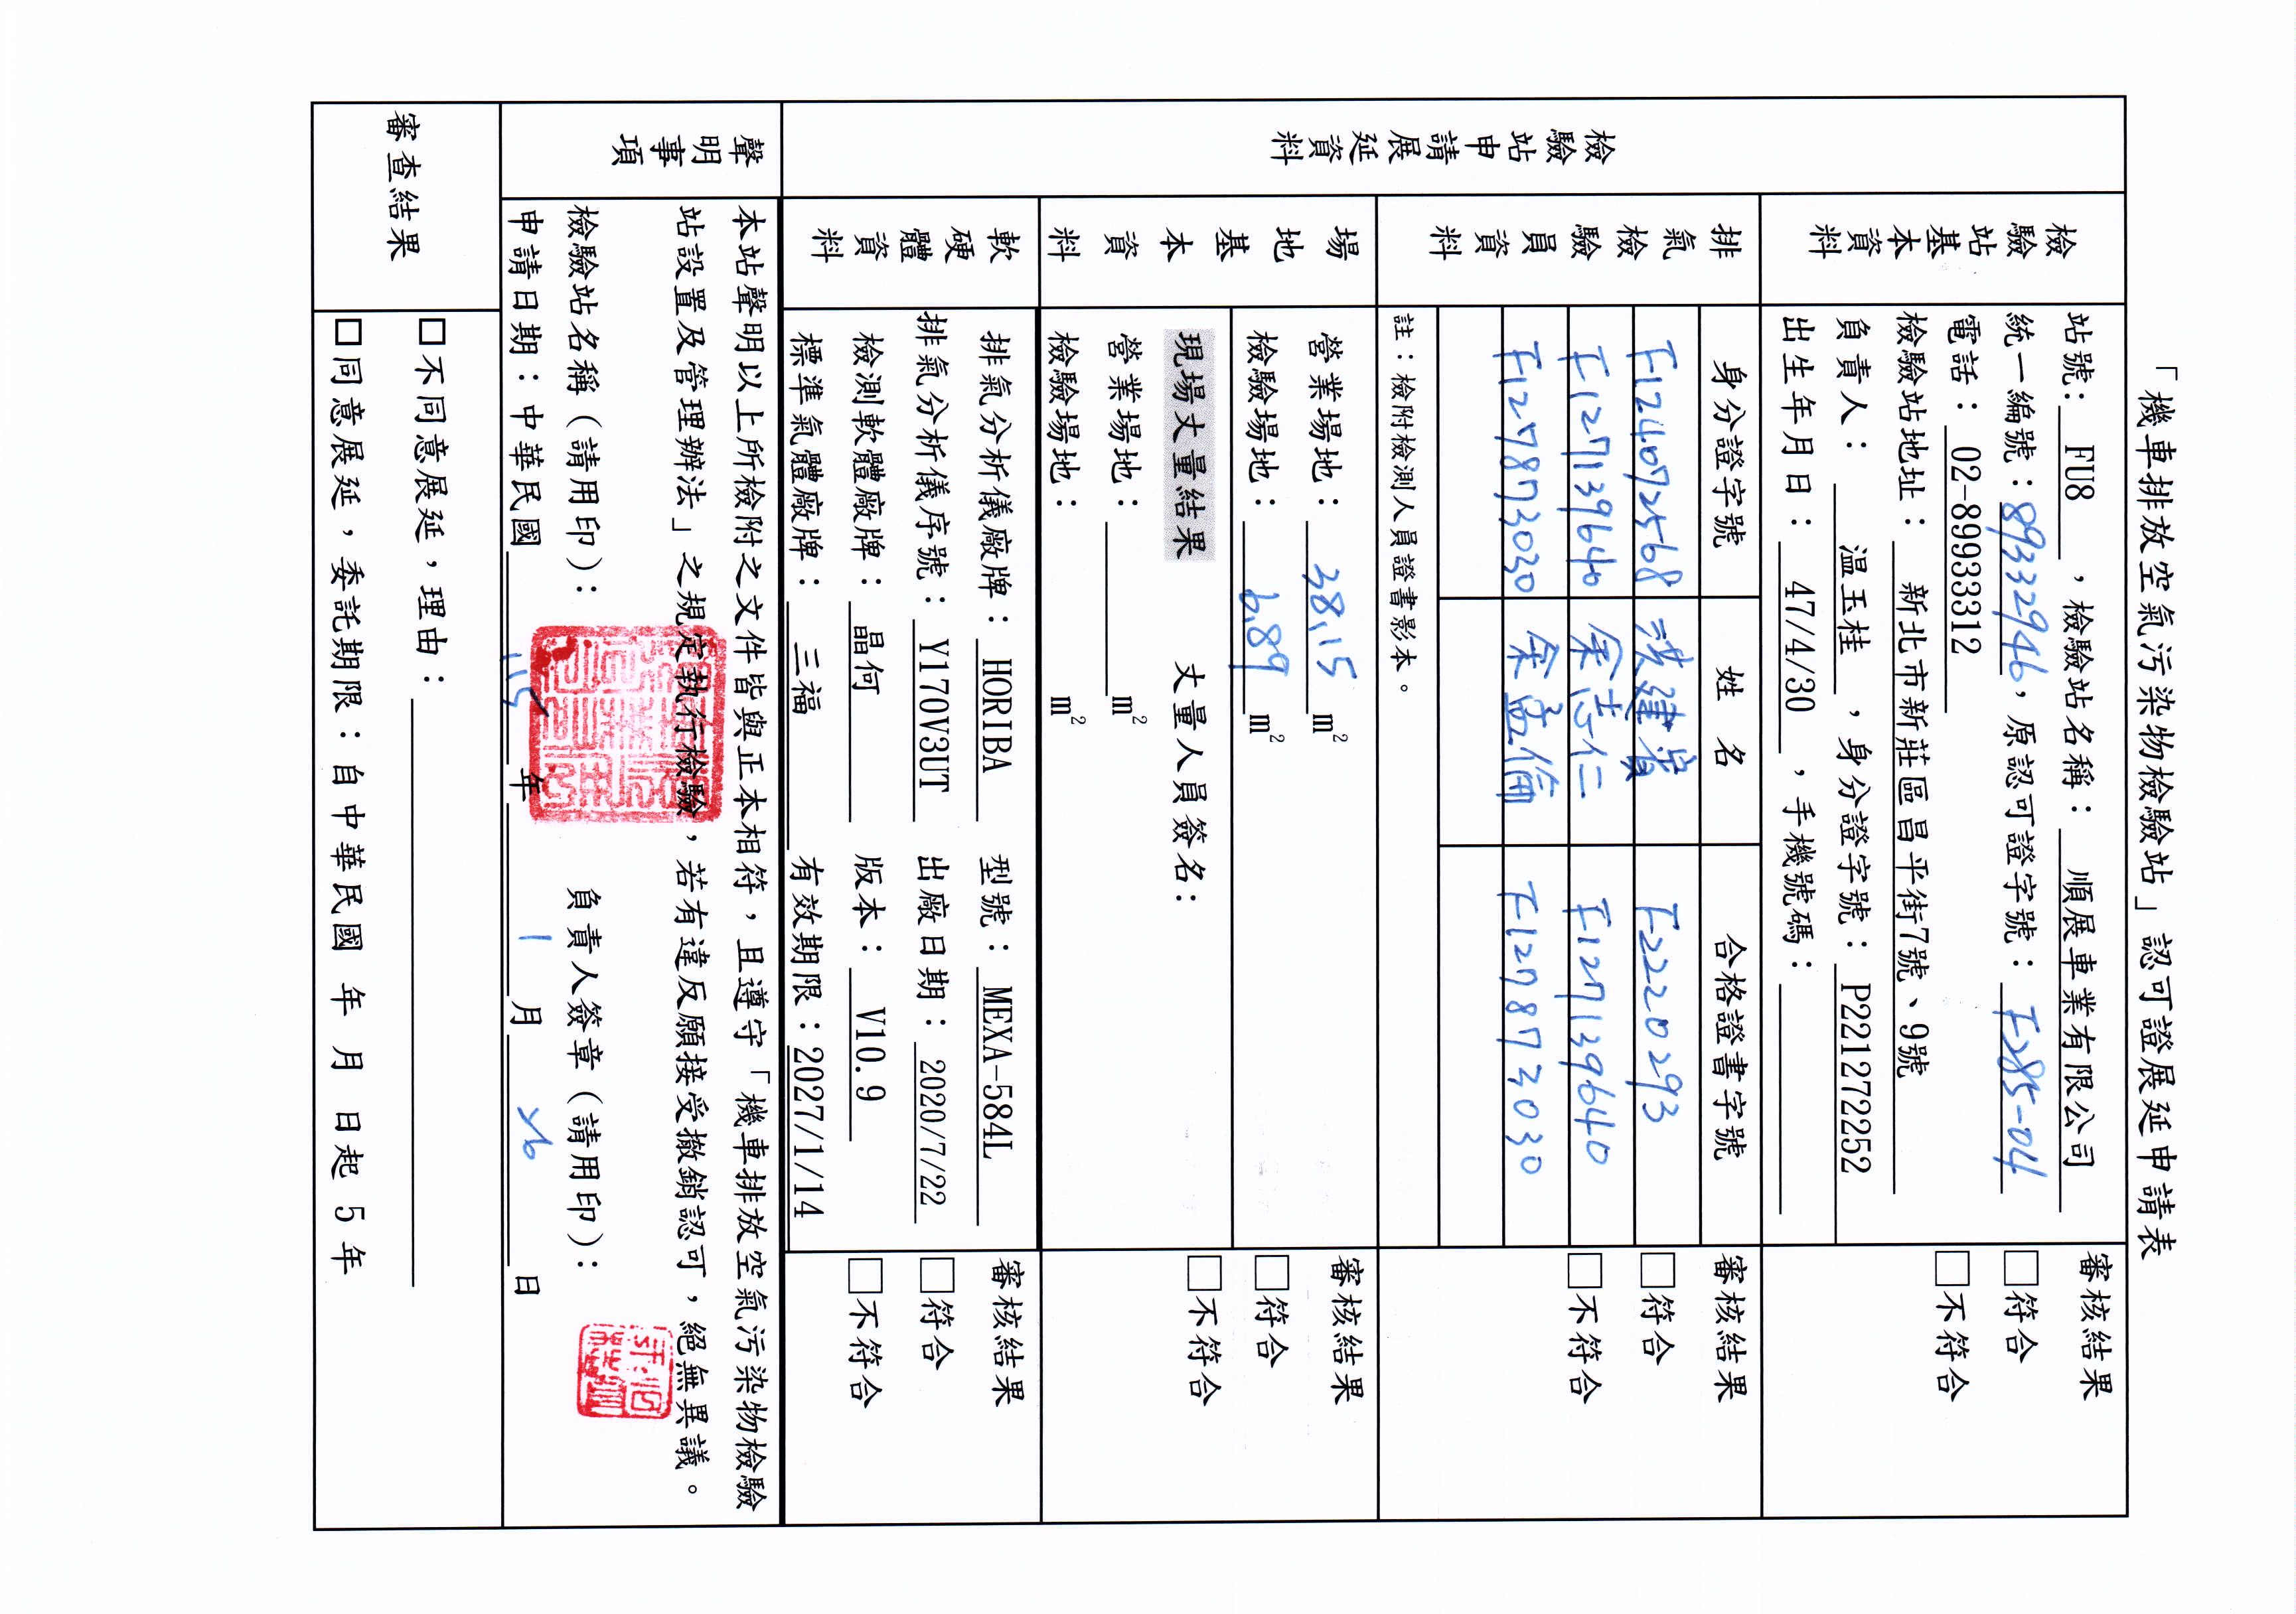 「機車排放空氣污染物檢驗站」認可證展延申請表
檢驗站申請展延資料
檢驗站基本資料
站號：FU8，檢驗站名稱：順展車業有限公司
統一編號：89332946，原認可證字號：F285-04
電話：02-89933312
檢驗站地址：新北市新莊區昌平街7號、9號
負責人：溫玉桂，身分證字號：P221272252
出生年月日：47/4/30，手機號碼：
審核結果
□符合
□不符合
排氣檢驗員資料
身分證字號 姓名 合格證書字號
F124072568 洪建 F2220293
F127139640 余志仁 F127139640
F127873030 余孟倫 F127873030
註：檢附檢測人員證書影本。
審核結果
□符合
□不符合
場地基本資料
營業場地：38.15 m²
檢驗場地：6.89 m²
現場丈量結果 丈量人員簽名：
營業場地： m²
檢驗場地： m²
審核結果
□符合
□不符合
軟硬體資料
排氣分析儀廠牌：HORIBA 型號：MEXA-584L
排氣分析儀序號：Y170V3UT 出廠日期：2020/7/22
檢測軟體廠牌：晶何 版本：V10.9
標準氣體廠牌：三福 有效期限：2027/1/14
審核結果
□符合
□不符合
聲明事項
本站聲明以上所檢附之文件皆與正本相符，且遵守「機車排放空氣污染物檢驗
站設置及管理辦法」之規定執行檢驗，若有違反願接受撤銷認可，絕無異議。
檢驗站名稱（請用印）： 負責人簽章（請用印）：
申請日期：中華民國 115 年 1 月 26 日
審查結果
□不同意展延，理由：
□同意展延，委託期限：自中華民國 年 月 日起 5 年